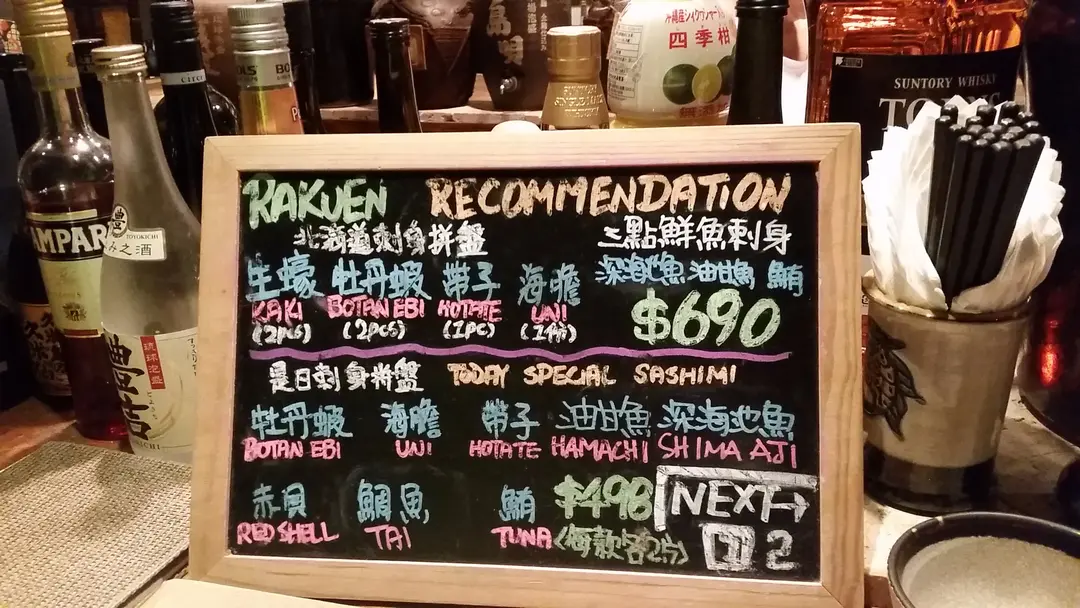 RAKUEN RECOMMENDATION
北海道刺身拼盤 三點鮮魚刺身
生蠔 牡丹蝦 帶子 海膽 深海池魚 油甘魚 鮪
KAKI BOTAN EBI HOTATE UNI $690
(2pcs) (2pcs) (1pc)
是日刺身拼盤 TODAY SPECIAL SASHIMI
牡丹蝦 海膽 帶子 油甘魚 深海池魚
BOTAN EBI UNI HOTATE HAMACHI SHIMA AJI
赤貝 鯛魚 鮪 $498 NEXT→
RED SHELL TAI TUNA (每款各2片) 2
四季柑
SUNTORY WHISKY
AMPAR
TOYOKICHI
み之酒
琉球泡盛